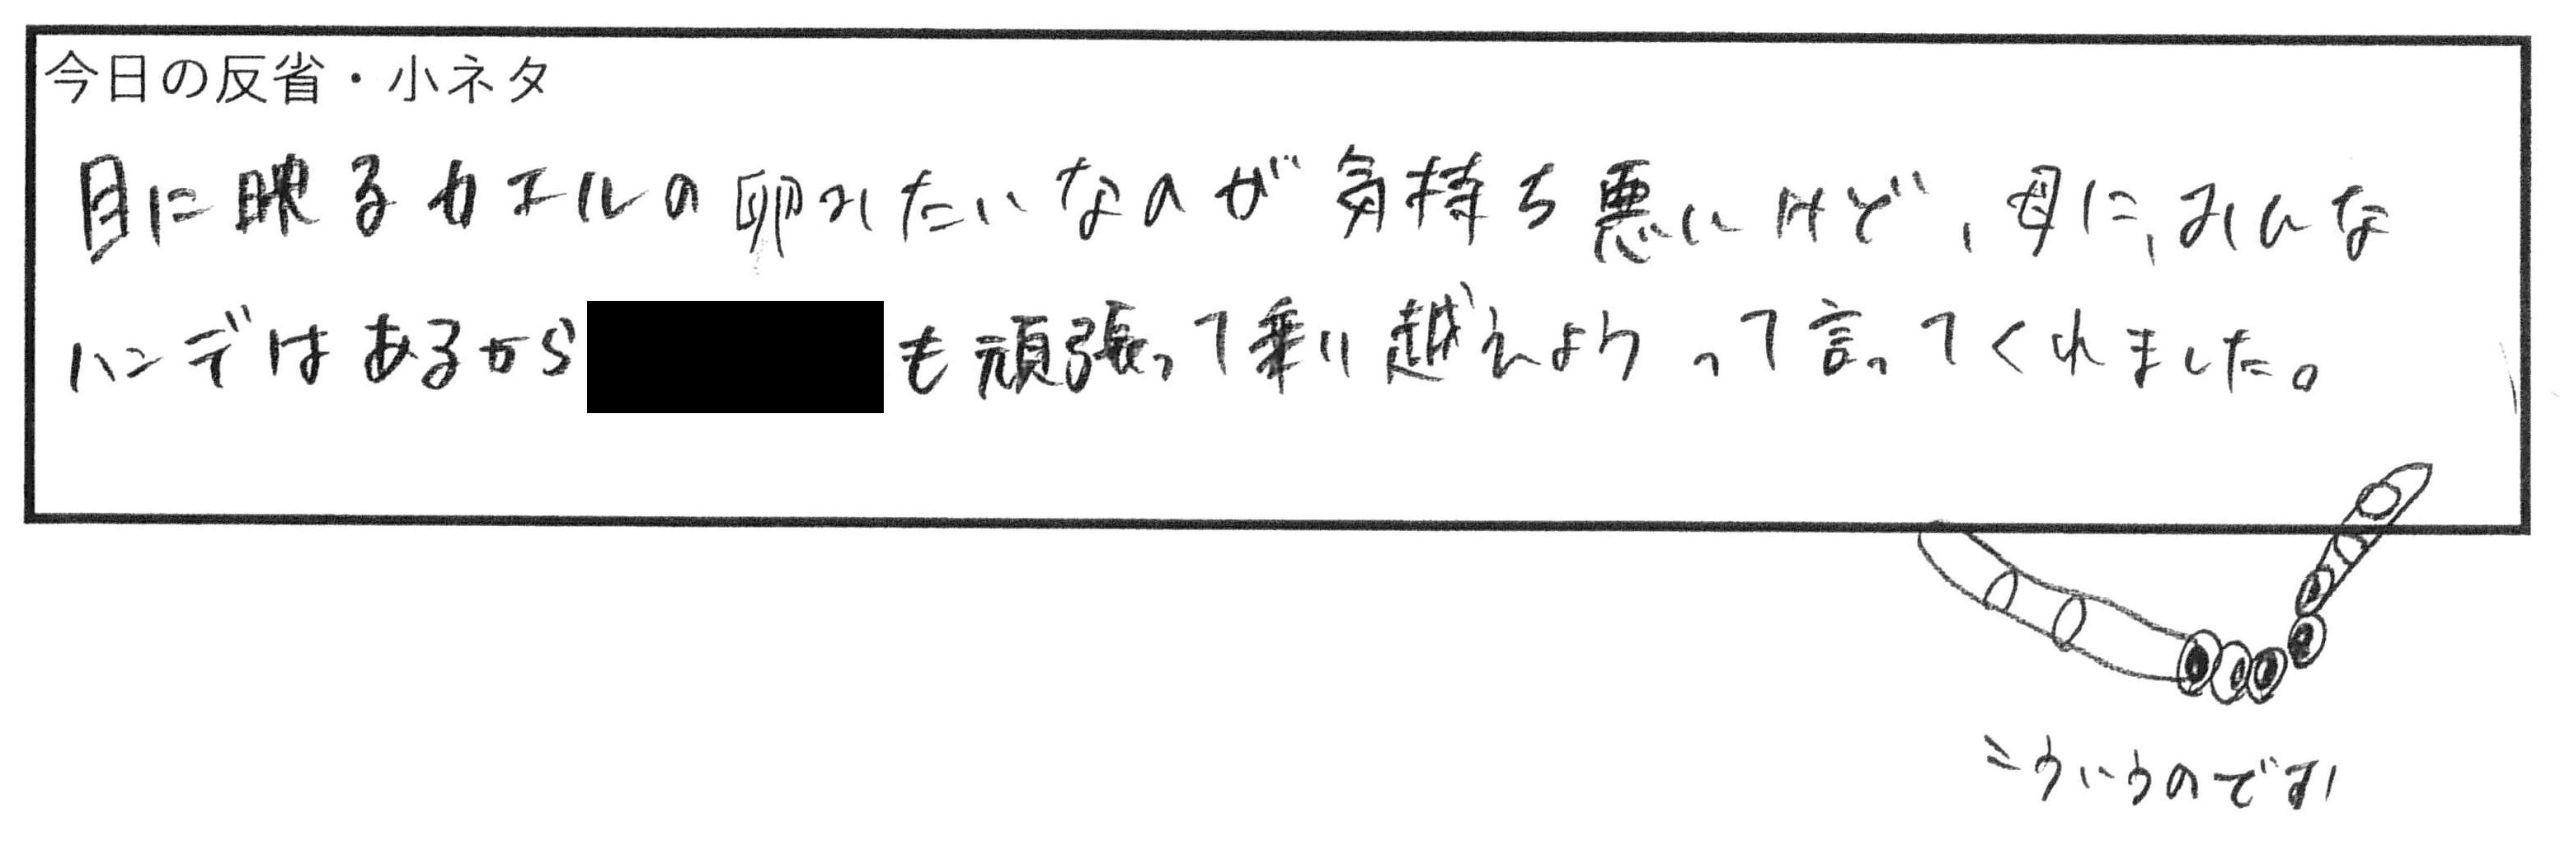 今日の反省・小ネタ
目に映るカエルの卵みたいなのが気持ち悪いけど、母に、みんな
ハンデはあるから
も頑張って乗り越えようって言ってくれました。
こういうのです!